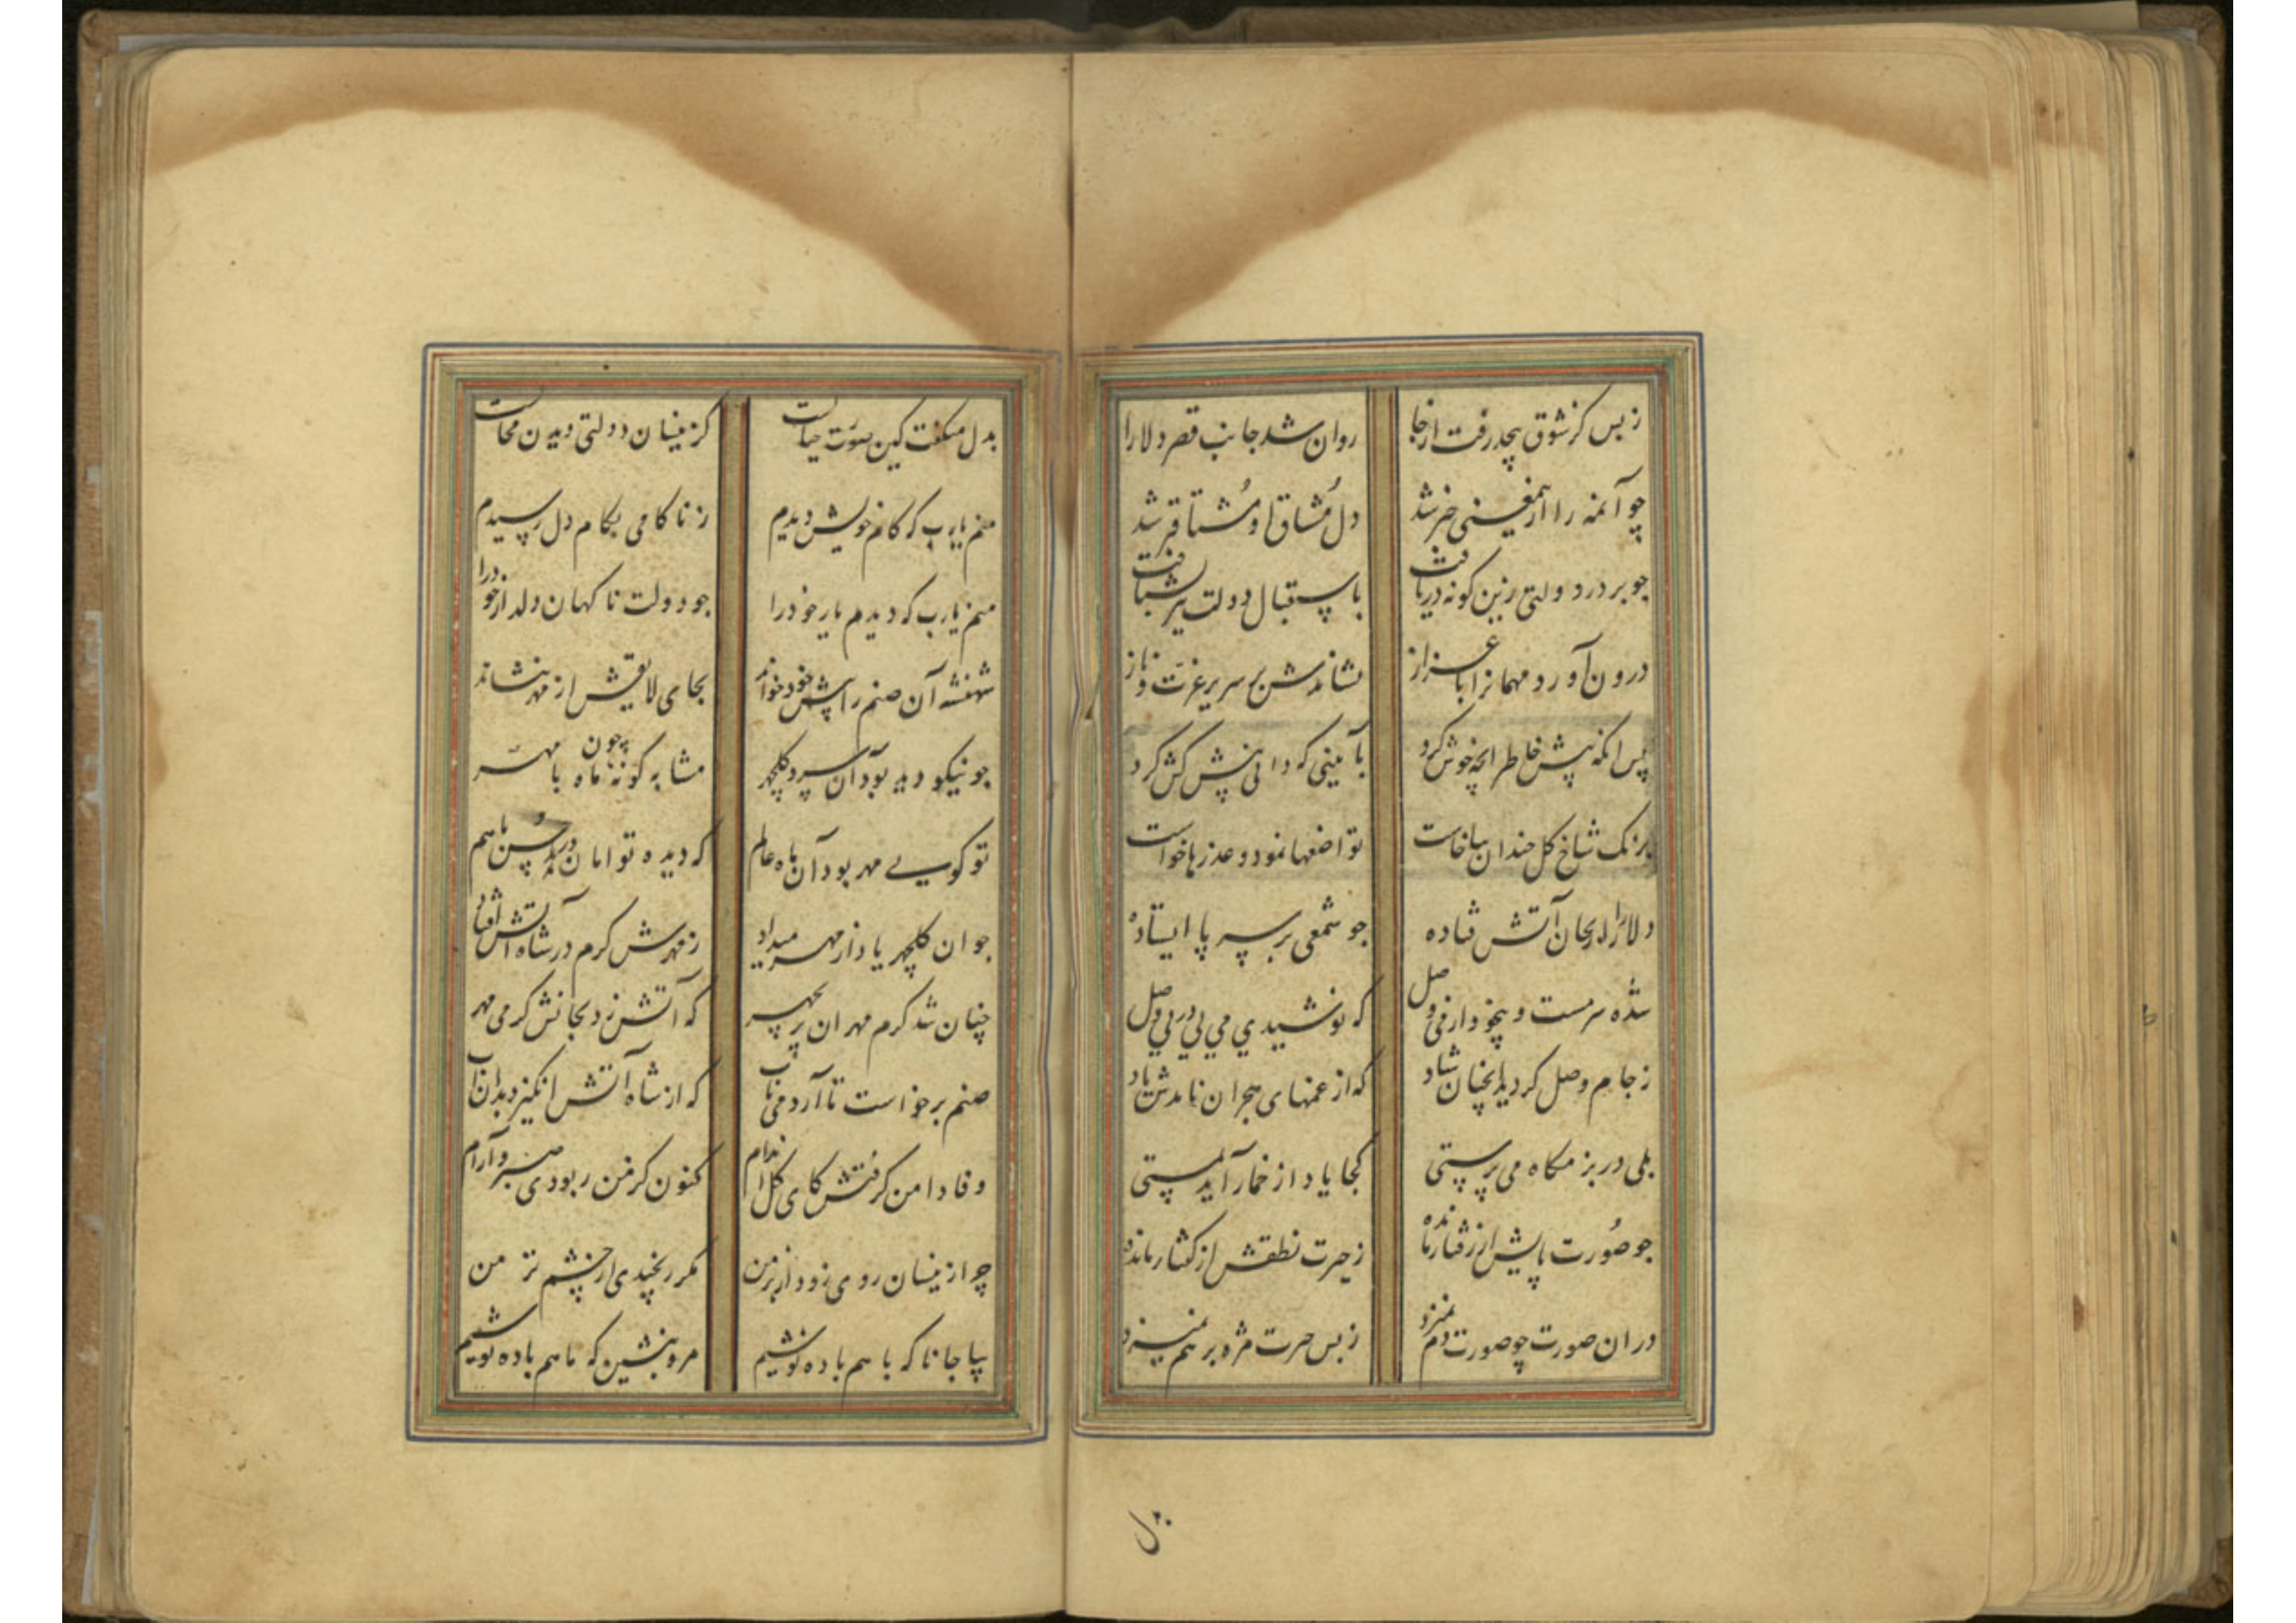 ز بس کز شوق بیخد رفت از جا روان شد جانب قصر دلارا
چو آئمه را ازیمعنی خبر شد دل مشتاق او مشتاقتر شد
چو بر در دولتی زین کونه دریافت باستقبال دولت تیز بشتافت
درون آورد مهمانرا باعزاز نشاندش بر سریر عزت و ناز
پس انکه پیش خاطر انچه خوش کرد بآیینی که دانی پیش کش کرد
برنک شاخ کل خندان بپا خاست تواضعها نمود و عذرها خواست
دلارا را بجان آتش فتاده چو شمعی بر سر پا ایستاده
شده سرمست و بیخود از می وصل که نوشیدی می پی در پی وصل
ز جام وصل کردید انچنان شاد که از غمهای هجران نامدش یاد
بلی در بزمکاه می پرستی کجا یاد از خمار آید بمستی
چو صورت پایش از رفتار مانده ز حیرت نطقش از کفتار مانده
در ان صورت چو صورت دم نمیزد ز بس حیرت مژه بر هم نمیزد
ل
بدل میکفت کین صورت خیالست کز ینسان دولتی دیدن محالست
منم یارب که کام خویش دیدم ز ناکامی بکام دل رسیدم
منم یارب که دیدم یار خود را چو دولت ناکهان دلدار خود را
شهنشه آن صنم را پیش خود خواند بجای لایقش از مهر بنشاند
چو نیکو دید بود آن سرو کلچهر مشابه کونه چون مه با مهر
تو کویی مهر بود آن ماه عالم که دیده توامان در حسن با هم
چو ان کلچهر یاد از مهر میداد ز مهرش کرم در شاه آتش افتاد
چنان شد کرم مهر ان پریچهر که آتش زد بجانش کرمی مهر
صنم برخواست تا آرد می ناب که از شاه آتش انکیزد بدان آب
وفا دامن کرفتش کای کل اندام کنون کز من ربودی صبر و آرام
چو از ینسان روی زود از بر من مکر رنجیدی از چشم تر من
بیا جانا که با هم باده نوشیم مرو بنشین که ما هم باده نوشیم